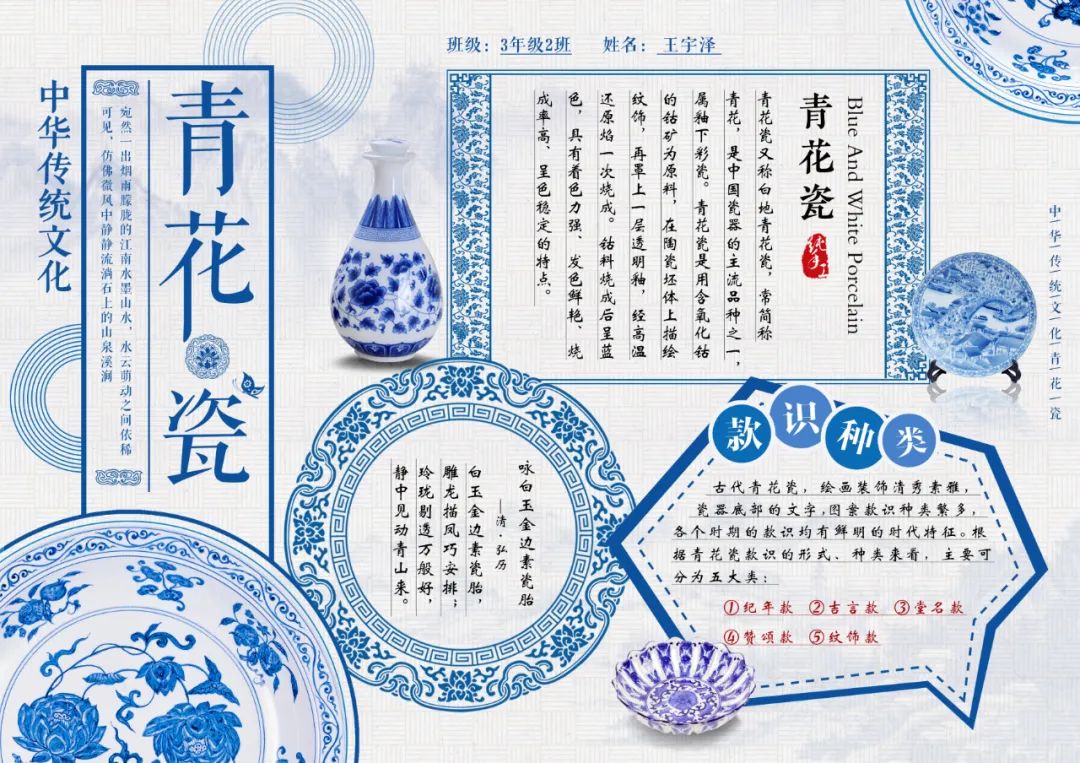 班级：3年级2班 姓名：王宇泽
中华传统文化
青花瓷
宛然一出烟雨朦胧的江南水墨山水，水云萌动之间依稀
可见，仿佛微风中静静流淌石上的山泉溪涧
Blue And White Porcelain
青花瓷
纯手工
青花瓷又称白地青花瓷，常简称
青花，是中国瓷器的主流品种之一，
属釉下彩瓷。青花瓷是用含氧化钴
的钴矿为原料，在陶瓷坯体上描绘
纹饰，再罩上一层透明釉，经高温
还原焰一次烧成。钴料烧成后呈蓝
色，具有着色力强、发色鲜艳、烧
成率高、呈色稳定的特点。
中华传统文化青花瓷
咏白玉金边素瓷胎
—清·弘历
白玉金边素瓷胎，
雕龙描凤巧安排；
玲珑剔透万般好，
静中见动青山来。
款识种类
古代青花瓷，绘画装饰清秀素雅，
瓷器底部的文字,图案款识种类繁多，
各个时期的款识均有鲜明的时代特征。根
据青花瓷款识的形式、种类来看，主要可
分为五大类：
①纪年款 ②吉言款 ③堂名款
④赞颂款 ⑤纹饰款